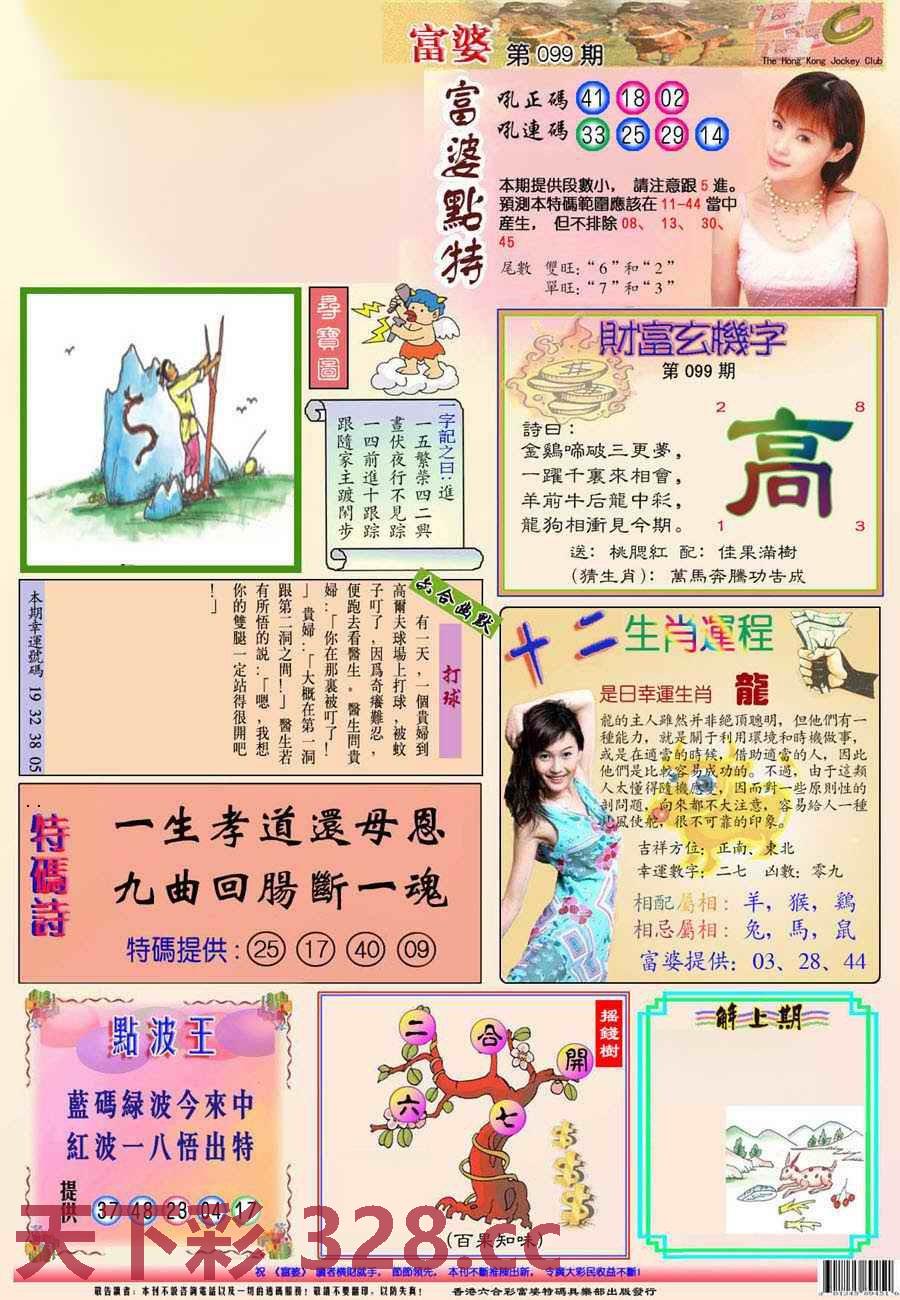 富婆 第 099 期
The Hong Kong Jockey Club
富婆點特
吼正碼 41 18 02
吼連碼 33 25 29 14
本期提供段數小， 請注意跟 5 進。
預測本特碼範圍應該在 11-44 當中
産生， 但不排除 08、 13、 30、
45
尾數 雙旺：“6”和“2”
單旺：“7”和“3”
尋寶圖
一字記之曰：進
一五繁榮四二與
晝伏夜行不見踪
一四前進十跟踪
跟隨家主踱閒步
財富玄機字
第 099 期
詩曰：
金鷄啼破三更夢，
一躍千裏來相會，
羊前牛后龍中彩，
龍狗相衝見今期。
2 8
高
1 3
送：桃腮紅 配：佳果滿樹
（猜生肖）：萬馬奔騰功告成
六合幽默
打球
有一天，一個貴婦到
高爾夫球場上打球，被蚊
子叮了，因爲奇癢難忍，
便跑去看醫生。醫生問貴
婦：「你在那裏被叮了！
」貴婦：「大概在第一洞
跟第二洞之間！」醫生若
有所悟的說：「嗯，我想
你的雙腿一定站得很開吧
！」
本期幸運號碼 19 32 38 05
十二生肖運程
是日幸運生肖 龍
龍的主人雖然并非絕頂聰明，但他們有一
種能力，就是關于利用環境和時機做事，
或是在適當的時候，借助適當的人，因此
他們是比較容易成功的。不過，由于這類
人太懂得隨機應變，因而對一些原則性的
問題，向來都不大注意，容易給人一種
風使舵，很不可靠的印象。
吉祥方位：正南、東北
幸運數字：二七 凶數：零九
相配屬相：羊，猴，鷄
相忌屬相：兔，馬，鼠
富婆提供：03、28、44
特碼詩
一生孝道還母恩
九曲回腸斷一魂
特碼提供：25 17 40 09
點波王
藍碼緑波今來中
紅波一八悟出特
提供 37 48 23 04 17
搖錢樹
二 合 開
六 七
（百果知味）
解上期
天下彩328.cc
祝 《富婆》 讀者橫財就手， 節節領先， 本刊不斷推陳出新， 令廣大彩民收益不斷！
敬告讀者：本刊不設咨詢電話以及一切的透碼服務！敬請不要翻印，以防失真！ 香港六合彩富婆特碼具樂部出版發行